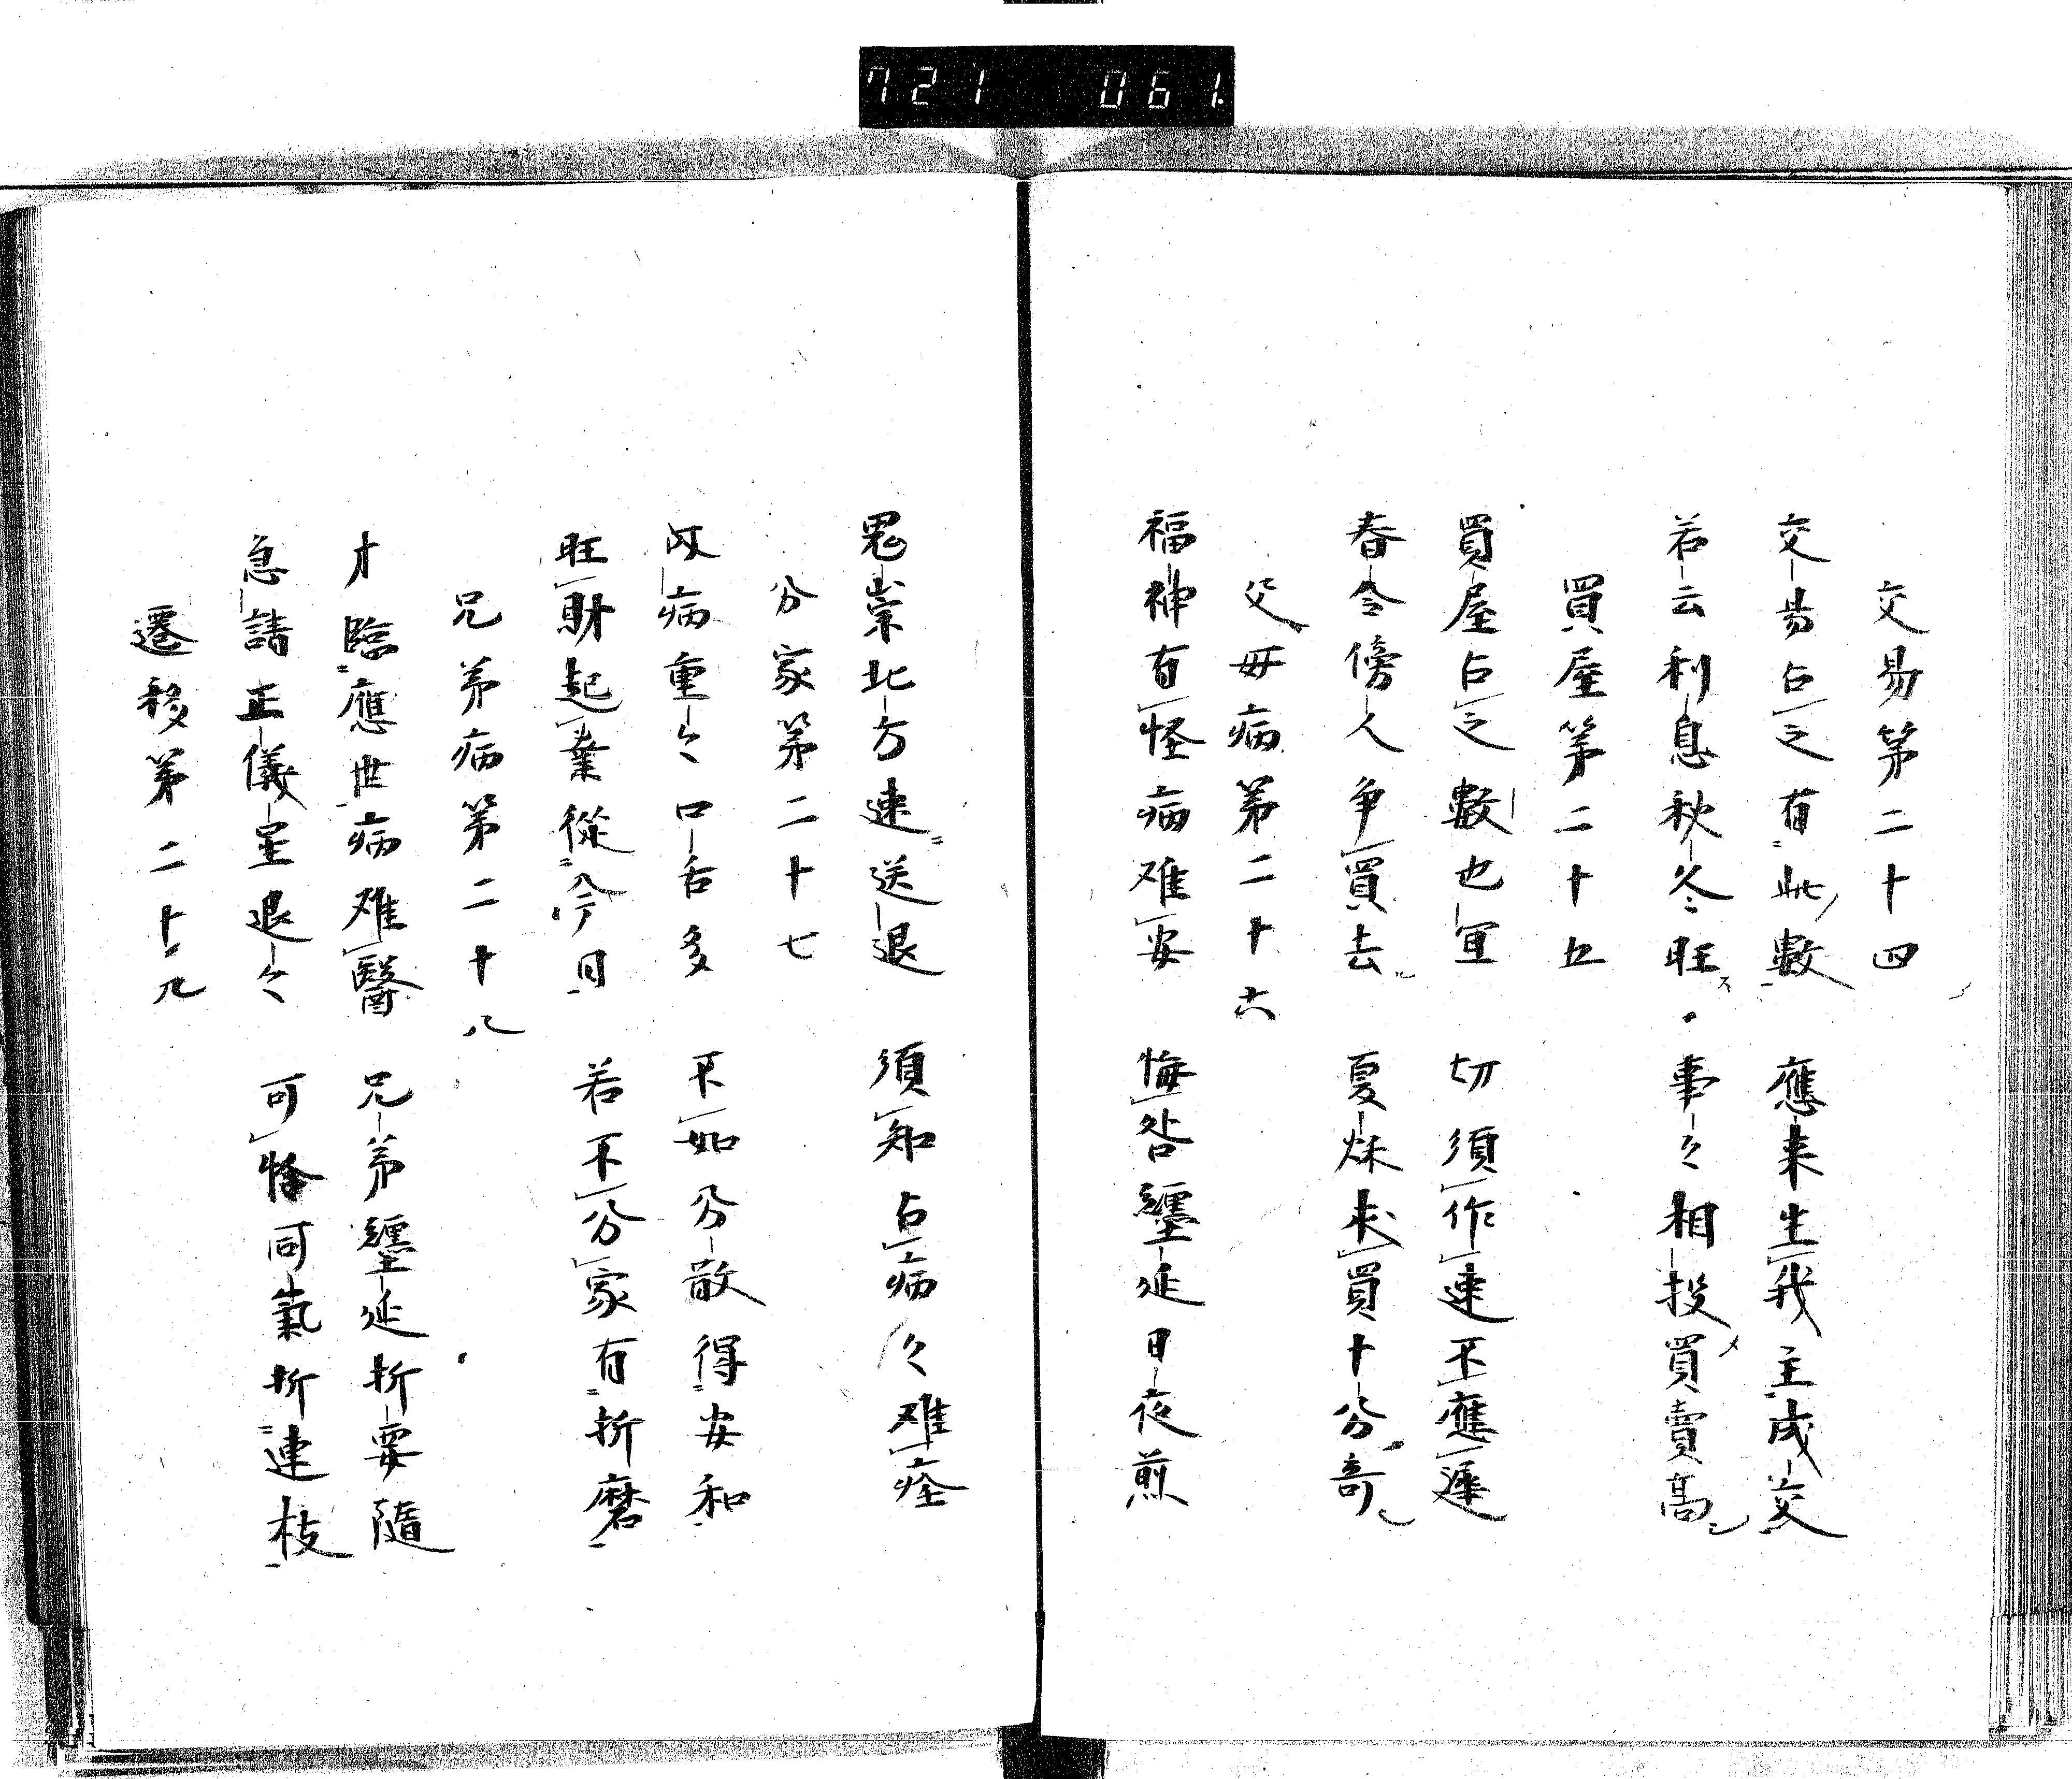 721 061.
交易第二十四
交易占之有此數 應来生我主成交
若云利息秋冬旺 事々相投買賣高
買屋第二十五
買屋占之數也宜 切須作速不應遲
春令傍人争買去 夏秋来買十分奇
父母病第二十六
福神有怪病难安 悔咎纏延日夜煎
鬼祟北方速送退 須知占病々难痊
分家第二十七
病重々口舌多 不如分散得安和
旺財起業從今日 若不分家有折磨
兄弟病第二十八
才臨應世病难醫 兄弟纏延折要隨
急請正儀星退々 可怪同氣折連枝
遷移第二十九